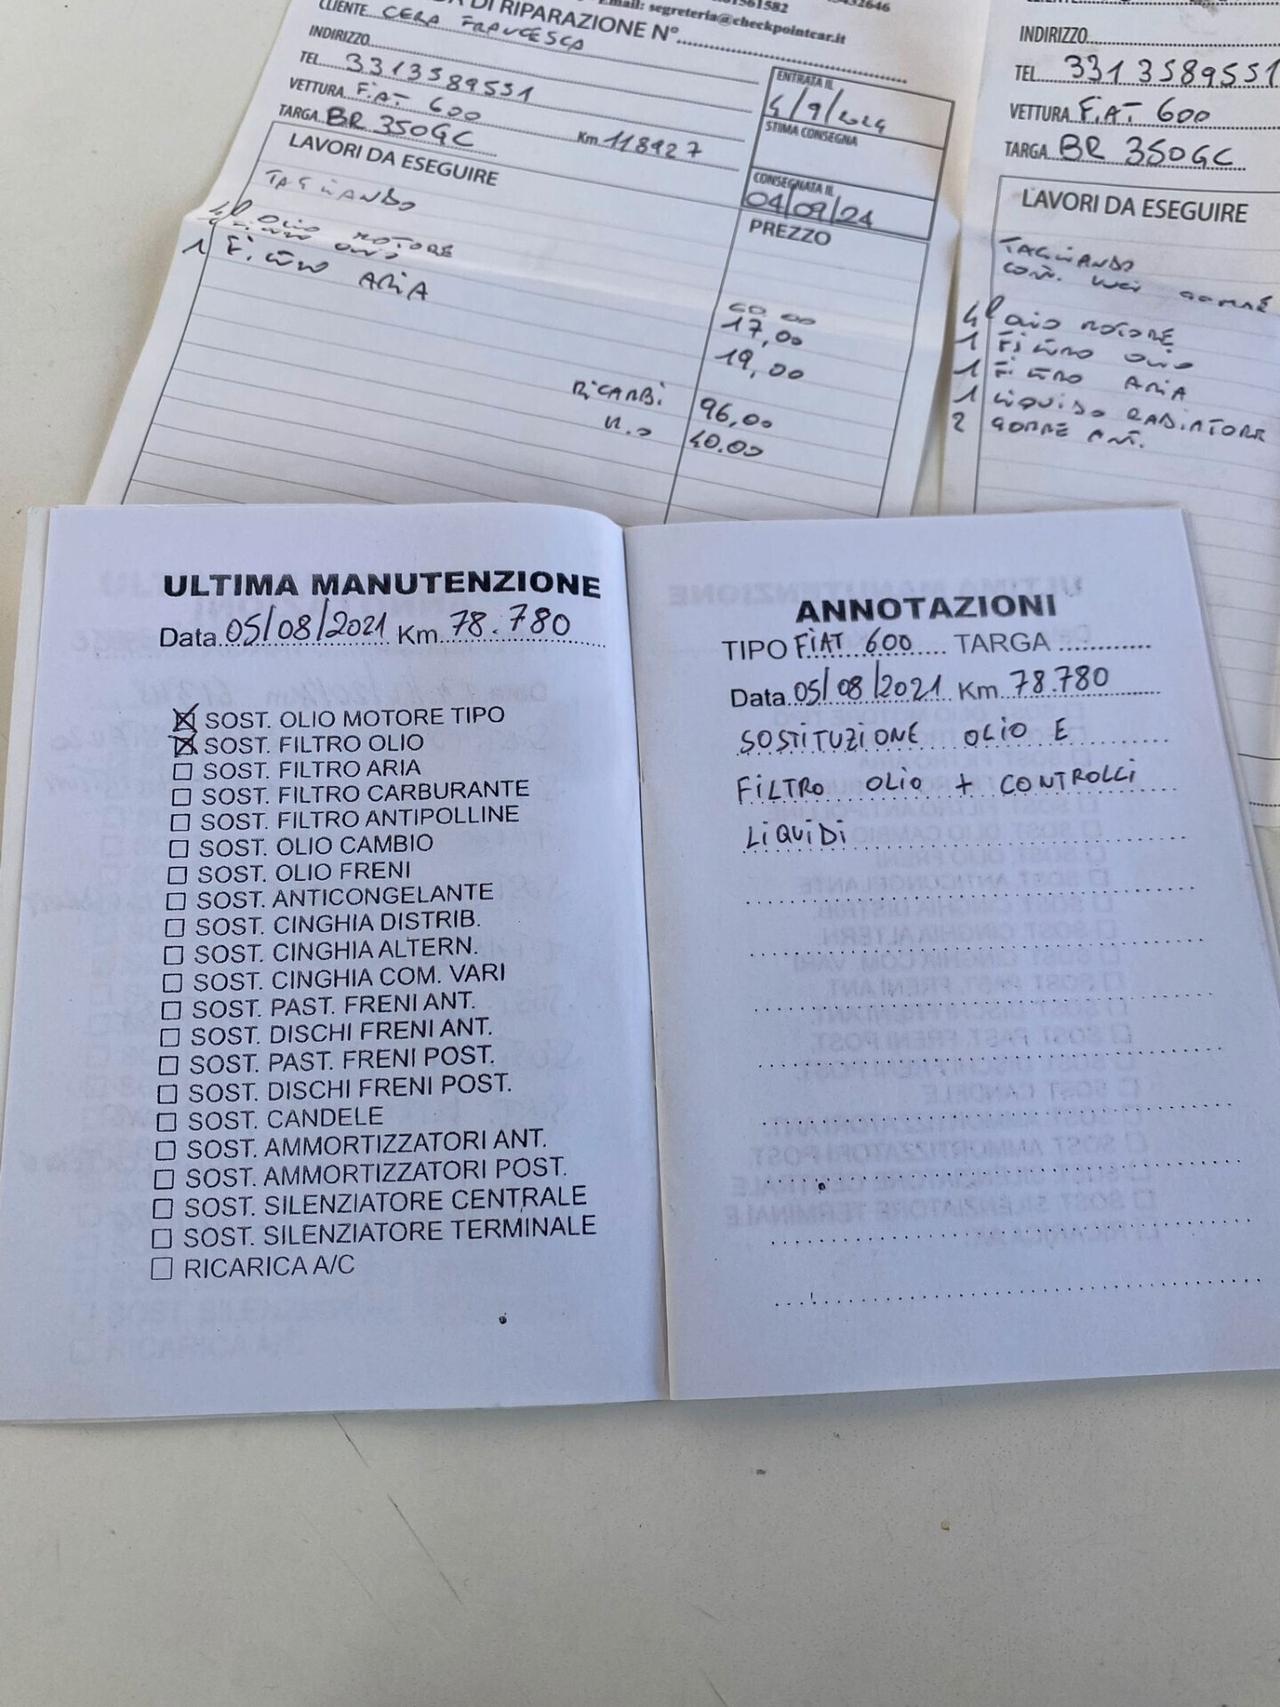 Email: segreteria@checkpointcar.it
DI RIPARAZIONE N°
CLIENTE CERA FRANCESCA
INDIRIZZO
TEL. 3313589551
VETTURA FiAT 600
TARGA BR 350GC Km 118927
ENTRATA IL
4/9/2024
STIMA CONSEGNA
CONSEGNATA IL
04/09/24
LAVORI DA ESEGUIRE
PREZZO
TAGLIANDO
4l OLIO MOTORE
FILTRO OLIO
1 FiLTRO ARIA
60.00
17,00
19,00
RICARBI 96,00
M.O 40.00
INDIRIZZO
TEL. 3313589551
VETTURA FiAT 600
TARGA BR 350GC
LAVORI DA ESEGUIRE
TAGLIANDO
CONT.
4l OLIO MOTORE
1 FiLTRO OLIO
1 FiLTRO ARIA
1 LIQUIDO RADIATORE
2 GOMME ANT.
ULTIMA MANUTENZIONE
Data 05/08/2021 Km 78.780
SOST. OLIO MOTORE TIPO
SOST. FILTRO OLIO
SOST. FILTRO ARIA
SOST. FILTRO CARBURANTE
SOST. FILTRO ANTIPOLLINE
SOST. OLIO CAMBIO
SOST. OLIO FRENI
SOST. ANTICONGELANTE
SOST. CINGHIA DISTRIB.
SOST. CINGHIA ALTERN.
SOST. CINGHIA COM. VARI
SOST. PAST. FRENI ANT.
SOST. DISCHI FRENI ANT.
SOST. PAST. FRENI POST.
SOST. DISCHI FRENI POST.
SOST. CANDELE
SOST. AMMORTIZZATORI ANT.
SOST. AMMORTIZZATORI POST.
SOST. SILENZIATORE CENTRALE
SOST. SILENZIATORE TERMINALE
RICARICA A/C
ANNOTAZIONI
TIPO FiAT 600 TARGA
Data 05/08/2021 Km 78.780
SOSTITUZIONE OLIO E
FILTRO OLIO + CONTROLLI
LIQUIDI